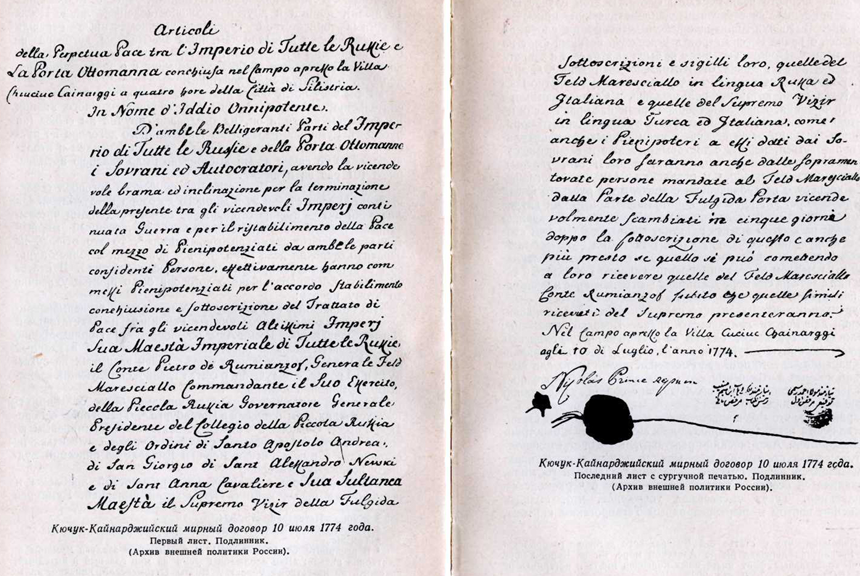 Articoli
della Perpetua Pace tra l'Imperio di Tutte le Russie e
La Porta Ottomanna conchiusa nel Campo apresso la Villa
Chiuciuc Cainarggi a quatro hore della Città di Silistria.
In Nome d'Iddio Onnipotente.
D'ambe le Belligeranti Parti del Imper
rio di Tutte le Russie e della Porta Ottomanne
i Sovrani ed Autocratori, avendo la vicende
vole brama ed inclinazione per la terminazione
della presente tra gli vicendevoli Imperj conti
nuata Guerra e per il ristabilimento della Pace
col mezzo di Pienipotenziati da ambe le parti
confidenti Persone, effettivamente hanno com
messi Pienipotenziati per l'accordo stabilimento
conchiusione e sottoscrizione del Trattato di
Pace fra gli vicendevoli Altissimi Imperj
Sua Maestà Imperiale di Tutte le Russie,
il Conte Pietro de Rumianzof, Generale Feld
Maresciallo Commandante il Suo Esercito,
della Piccola Russia Governatore Generale
Presidente del Collegio della Piccola Russia
e degli Ordini di Santo Apostolo Andrea,
di San Giorgio di Sant Alessandro Newski
e di Sant Anna Cavaliere e Sua Sultanea
Maestà il Supremo Vizir della Fulgida
Кючук-Кайнарджийский мирный договор 10 июля 1774 года.
Первый лист. Подлинник.
(Архив внешней политики России).
Sottoscrizioni e sigilli loro, quelle del
Feld Maresciallo in lingua Russa ed
Italiana e quelle del Supremo Vizir
in lingua Turca ed Italiana, come
anche i Pienipoteri a essi dati dai So-
vrani loro saranno anche dalle sopramen
tovate persone mandate al Feld Maresciallo
dalla Parte della Fulgida Porta vicende
volmente scambiati in cinque giorni
doppo la sottoscrizione di questo e anche
più presto se quello sè può comettendo
a loro ricevere quelle del Feld Maresciallo
Conte Rumianzof subito che quelle simili
ricevuti del Supremo presenteranno.
Nel Campo apresso la Villa Cuciuc Chainarggi
agli 10 di Luglio, l'anno 1774.
Nicolas Prince
Кючук-Кайнарджийский мирный договор 10 июля 1774 года.
Последний лист с сургучной печатью. Подлинник.
(Архив внешней политики России).